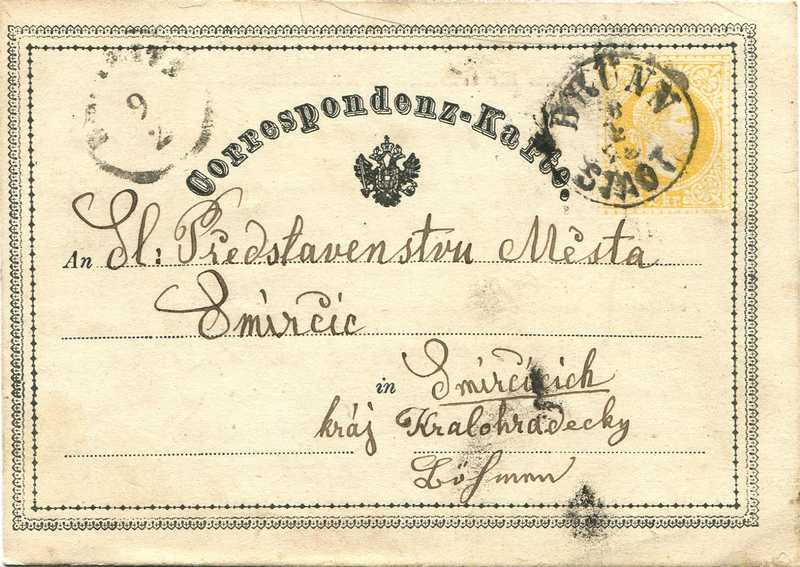 Correspondenz-Karte.
BRÜNN
STADT
6
An Sl: Představenstvu Města
Smiřčic
in Smiřčicích
kráj Kralohradecky
Böhmen